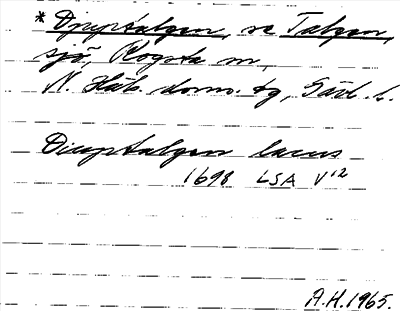 * Djuptalgen, se Talgen,
sjö, Rogsta sn,
N. Häls. doms. tg, Gävl. l.
Diuptalgen lacus
1698 LSA V¹²
A.H. 1965.